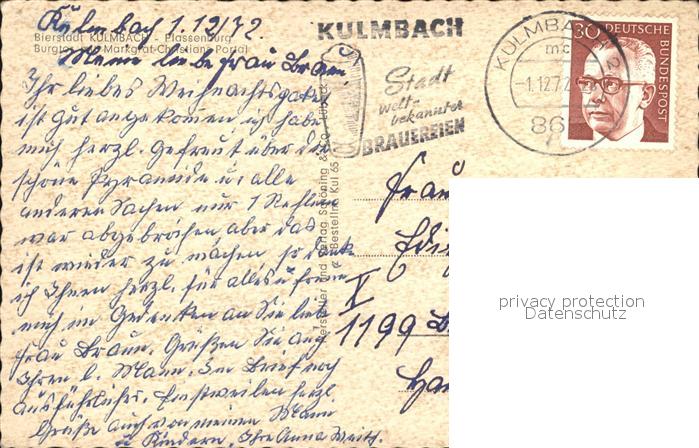 Kulmbach 1.12/72.
Bierstadt KULMBACH - Plassenburg
Burgtor mit Markgraf-Christians-Portal
Meine liebe Frau Braun,
Ihr liebes Weihnachtspaket
ist gut angekommen ich habe
mich herzl. gefreut über die
schöne Pyramide u. alle
anderen Sachen nur 1
war abgebrochen aber das
ist wieder zu machen so dank
ich Ihnen herzl. für alles u freue
mich im Gedenken an Sie liebe
Frau Braun. Grüßen Sie auch
Ihren l. Mann. Im Brief noch
ausführlicher. Einstweilen herzl
Grüße auch von meinem Mann
u Kindern, Ihre Anna
KULMBACH
Stadt
welt-
bekannter
BRAUEREIEN
KULMBACH 2
mc
-1.12.72
865
30 DEUTSCHE
BUNDESPOST
Frau
Edi
V
1199 B
privacy protection
Datenschutz